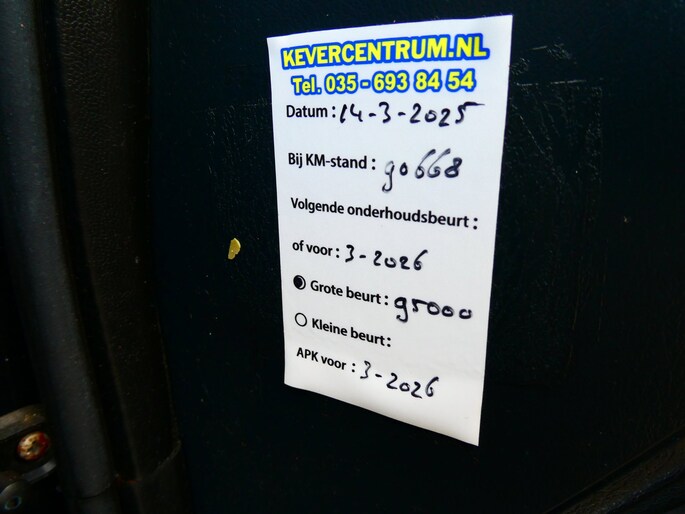 KEVERCENTRUM.NL
Tel. 035 - 693 84 54
Datum : 14-3-2025
Bij KM-stand : 90668
Volgende onderhoudsbeurt :
of voor : 3-2026
Grote beurt : 95000
Kleine beurt :
APK voor : 3-2026